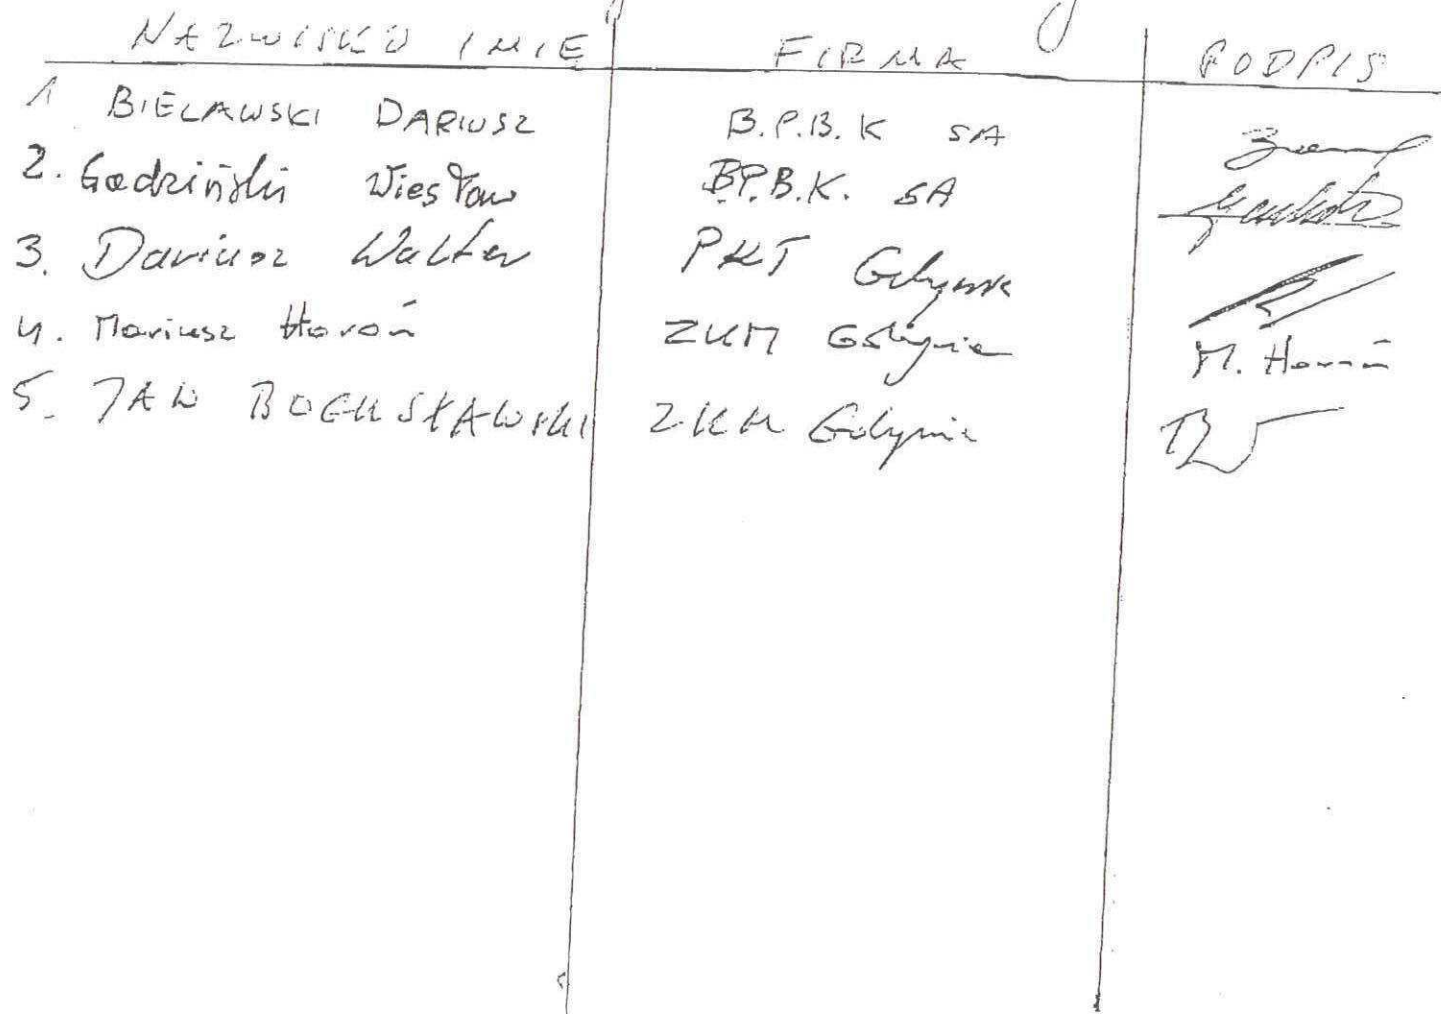 NAZWISKO IMIĘ FIRMA PODPIS
1 BIELAWSKI DARIUSZ B.P.B.K SA
2. Gadziński Wiesław B.P.B.K. SA
3. Dariusz Walter PKT Gdynia
4. Mariusz Horań ZKM Gdynia M. Horań
5. JAN BOGUSŁAWSKI ZKM Gdynia